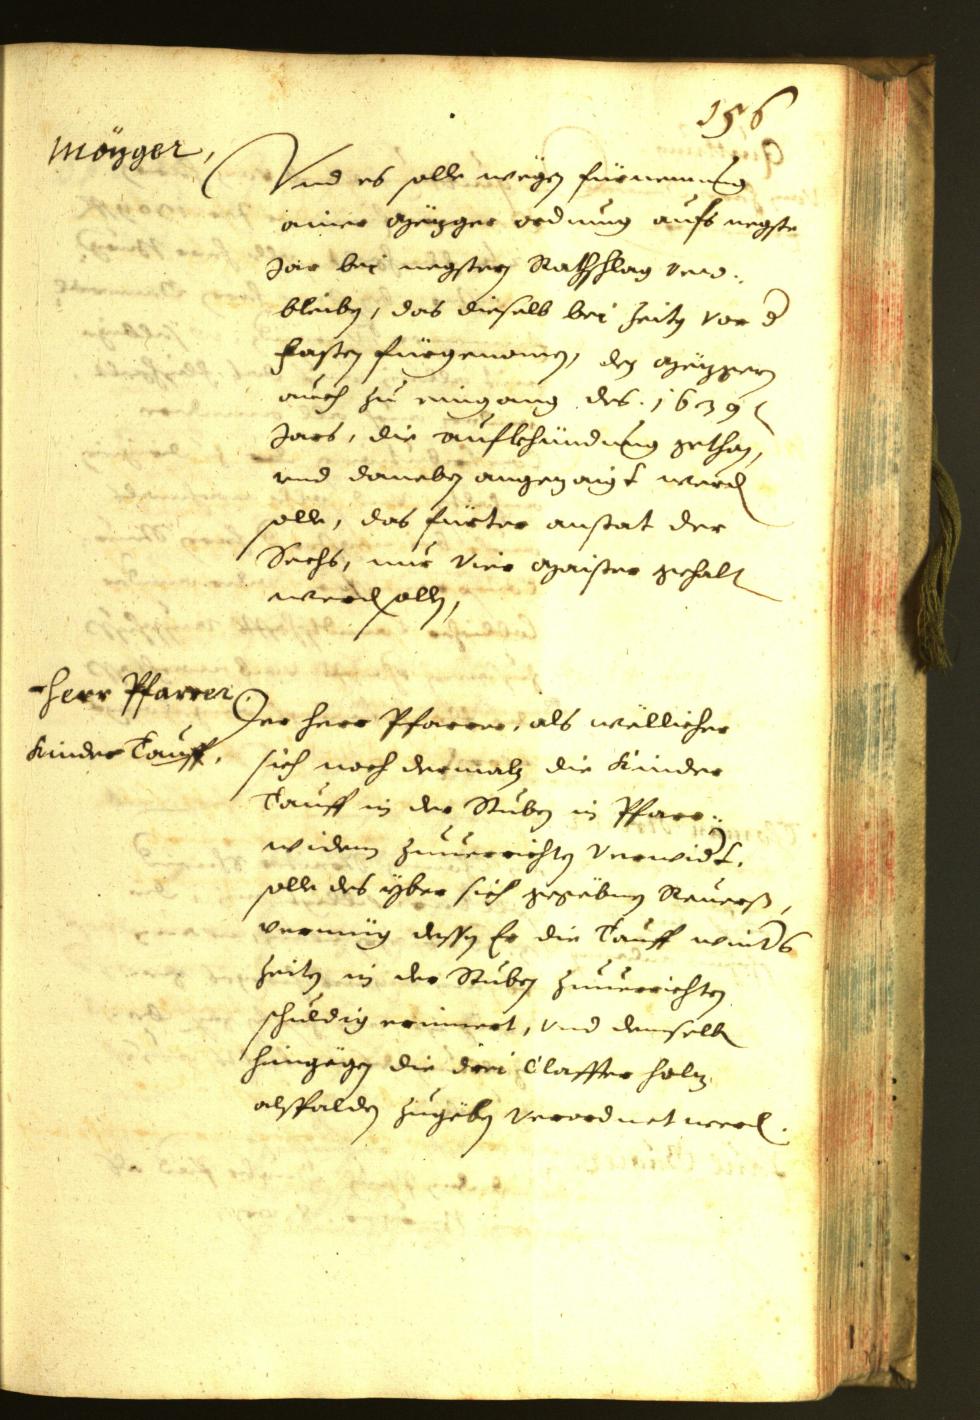 156
Mözger,
Vnd es solle wegen fürnemung
ainer Mezger ordnung aufs negste
Jar bei negstem Rathschlag ver-
bleiben, das dieselb bei zeiten vor d
Fasten fürgenomen, den Mezgern
auch zu eingang des 1639
Jars, die aufkhündung gethan,
vnd daneben angezaigt werd
solle, das fürter anstat der
Sechs, nur Vier Maister gehalt
werd sollen,
Herr Pfarrer
Kinder Tauff,
Der Herr Pfarrer, als wellicher
sich noch dermaln die Kinder
Tauff in der Stuben in Pfarr-
widem zuuerrichten verwidert,
solle des yber sich gegebnen Reuerß,
vermüg dessen Er die Tauff winters
zeiten in der Stuben zuuerrichten
schuldig erinnert, vnd demselb
hingegen die drei Claffter holz
alspalden zugeben verordnet werd.